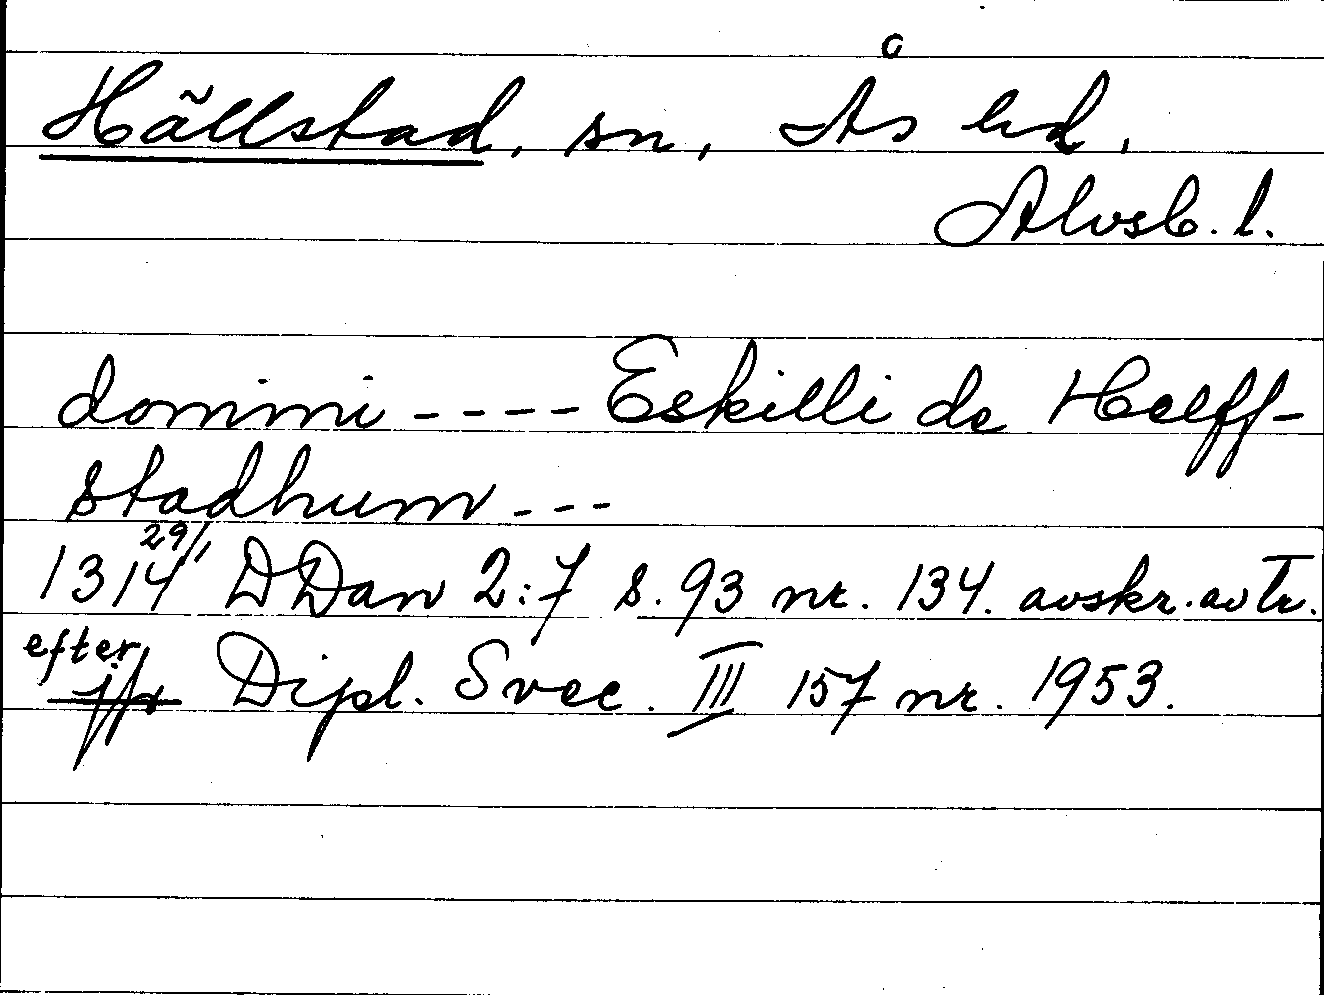 Hällstad, sn, Ås hd,
Älvsb. l.
domini - - - - Eskilli de Helff-
stadhum - - -
1314 29/1 DDan 2:7 s. 93 nr. 134. avskr. av Tr.
efter jfr Dipl. Svec. III 157 nr. 1953.